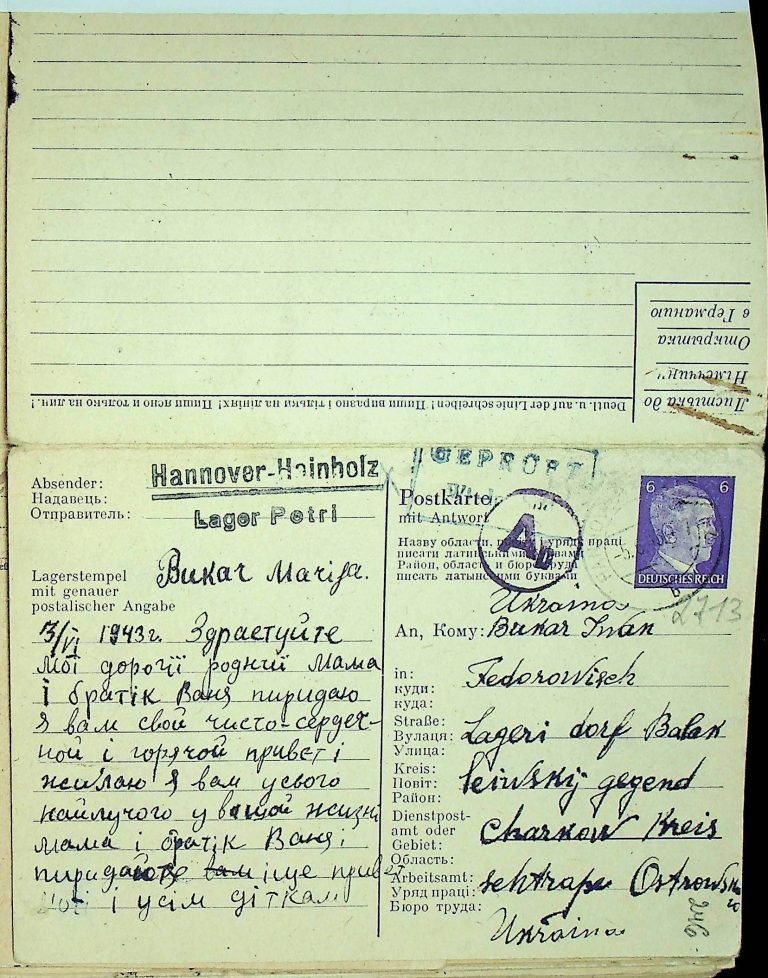 Листівка до
Німеччини
Открытка
в Германию
Deutl. u. auf der Linie schreiben! Пиши виразно і тільки на лініях! Пиши ясно и только на лин.!
Absender:
Надавець:
Отправитель:
Hannover-Hainholz
Lager Petri
Lagerstempel
mit genauer
postalischer Angabe
Bukar Marija.
1943г. Здрастуйте
Мої дорогії роднії мама
і братік Ваня пиридаю
я вам свой чисто-сердеч-
ной і горячой привет і
жилаю я вам усього
найлучого у вашой жизні
мама і братік Ваня і
пиридайте вам іще привет
Моті і усім діткам
GEPRÜFT
Postkarte
mit Antwort
Назву области, уряду праці
писати латинськими буквами
Район, область и бюро труда
писать латынскими буквами
Ab
6 6
DEUTSCHES REICH
2713
Ukraina
An, Кому: Bukar Iwan
in:
куди:
куда:
Fedorowisch
Straße:
Вулиця:
Улица:
Lageri dorf Balak
Kreis:
Повіт:
Район:
leiwskij gegend
Dienstpost-
amt oder
Gebiet:
Область:
Charkow Kreis
Arbeitsamt:
Уряд праці:
Бюро труда:
Ostrowska
Ukraina
246